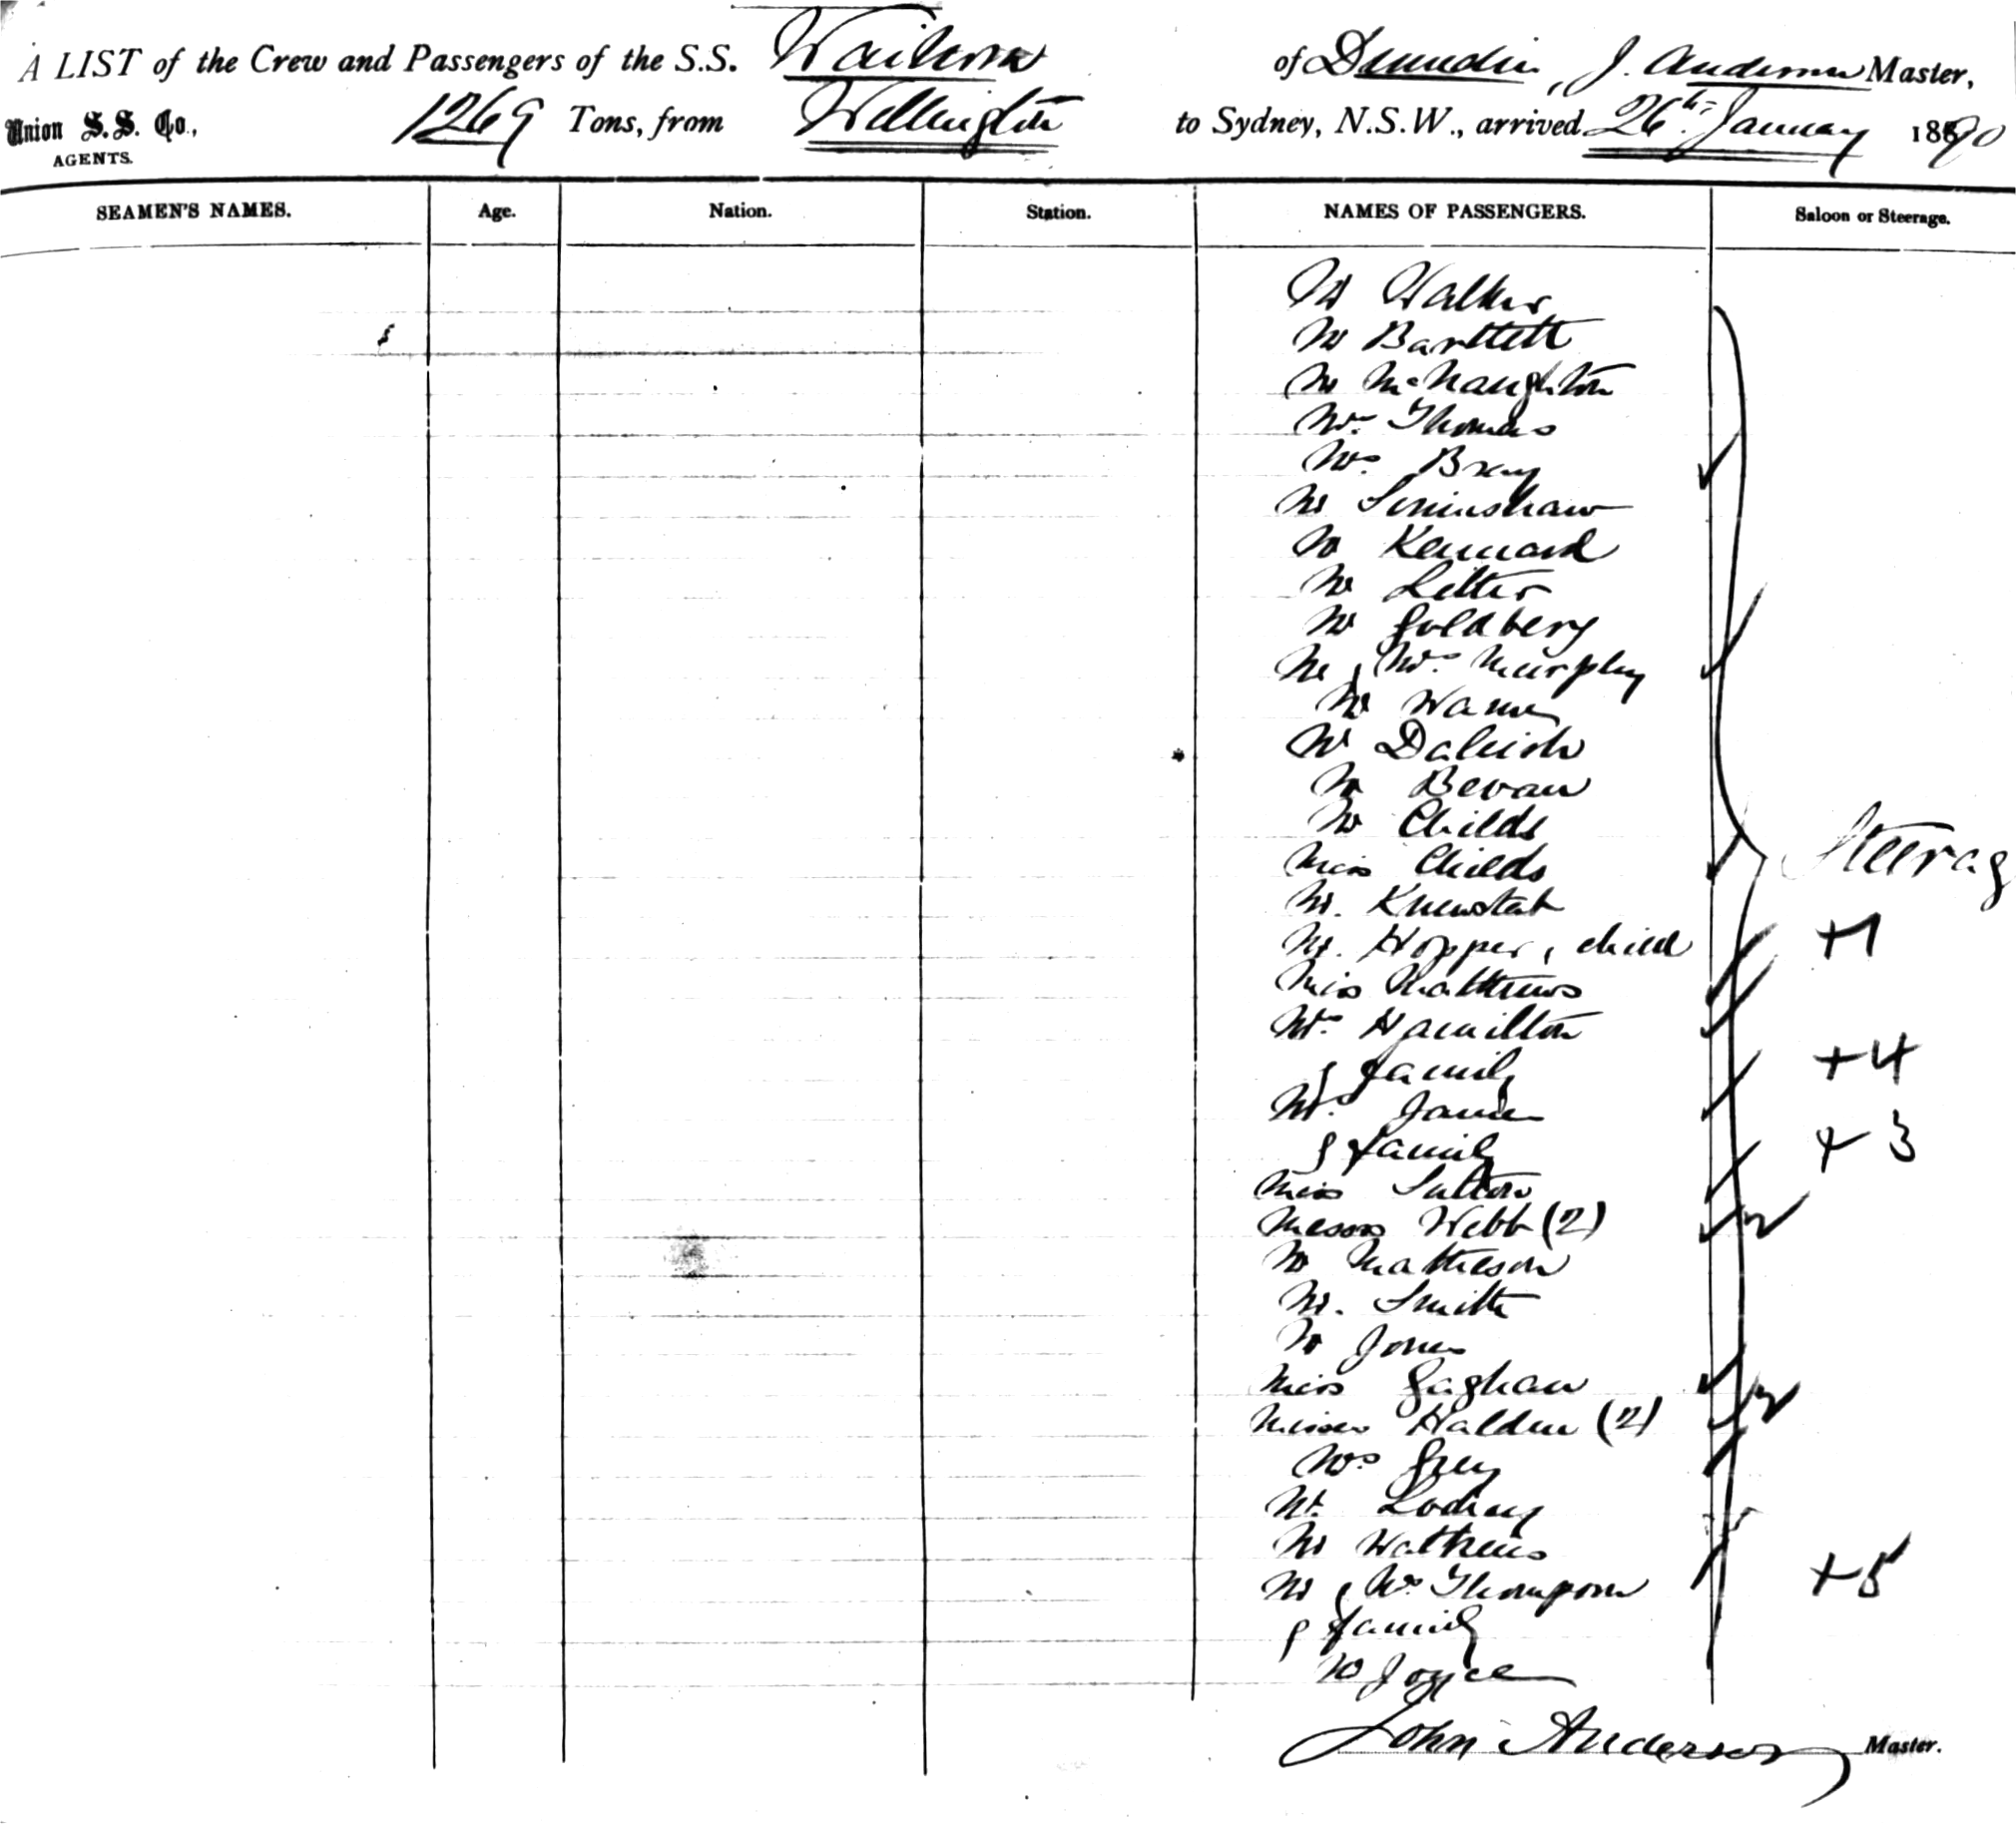 A LIST of the Crew and Passengers of the S.S. Waihora of Dunedin, J. Anderson Master,
Union S.S. Co., 1269 Tons, from Wellington to Sydney, N.S.W., arrived 26th January 1890
AGENTS.
SEAMEN'S NAMES. Age. Nation. Station. NAMES OF PASSENGERS. Saloon or Steerage.
Mr Walker
Mr Bartlett
Mr McNaughton
Mrs Thomas
Mrs Bray
Mr Siminshaw
Mr Kennard
Mr Letter
Mr Goldberg
Mr & Mrs Murphy
Mr
Mr Daleish
Mr Bevan
Mr Childs
Steerag
Miss Childs
Mr. Knewstab
Mr. Hopper & child +1
Miss Matthews
Mrs Hamilton
& family +4
Mrs James
& family + 3
Miss Sutton
Messrs Webb (2) 2
Mr Mathieson
Mr. Smith
Mr Jones
Miss Gaghan
Misses Halden (2) 2
Mrs Grey
Mr.
Mr Watkins
Mr & Mrs Thompson +5
& family
Mr Joyce
John Anderson Master.